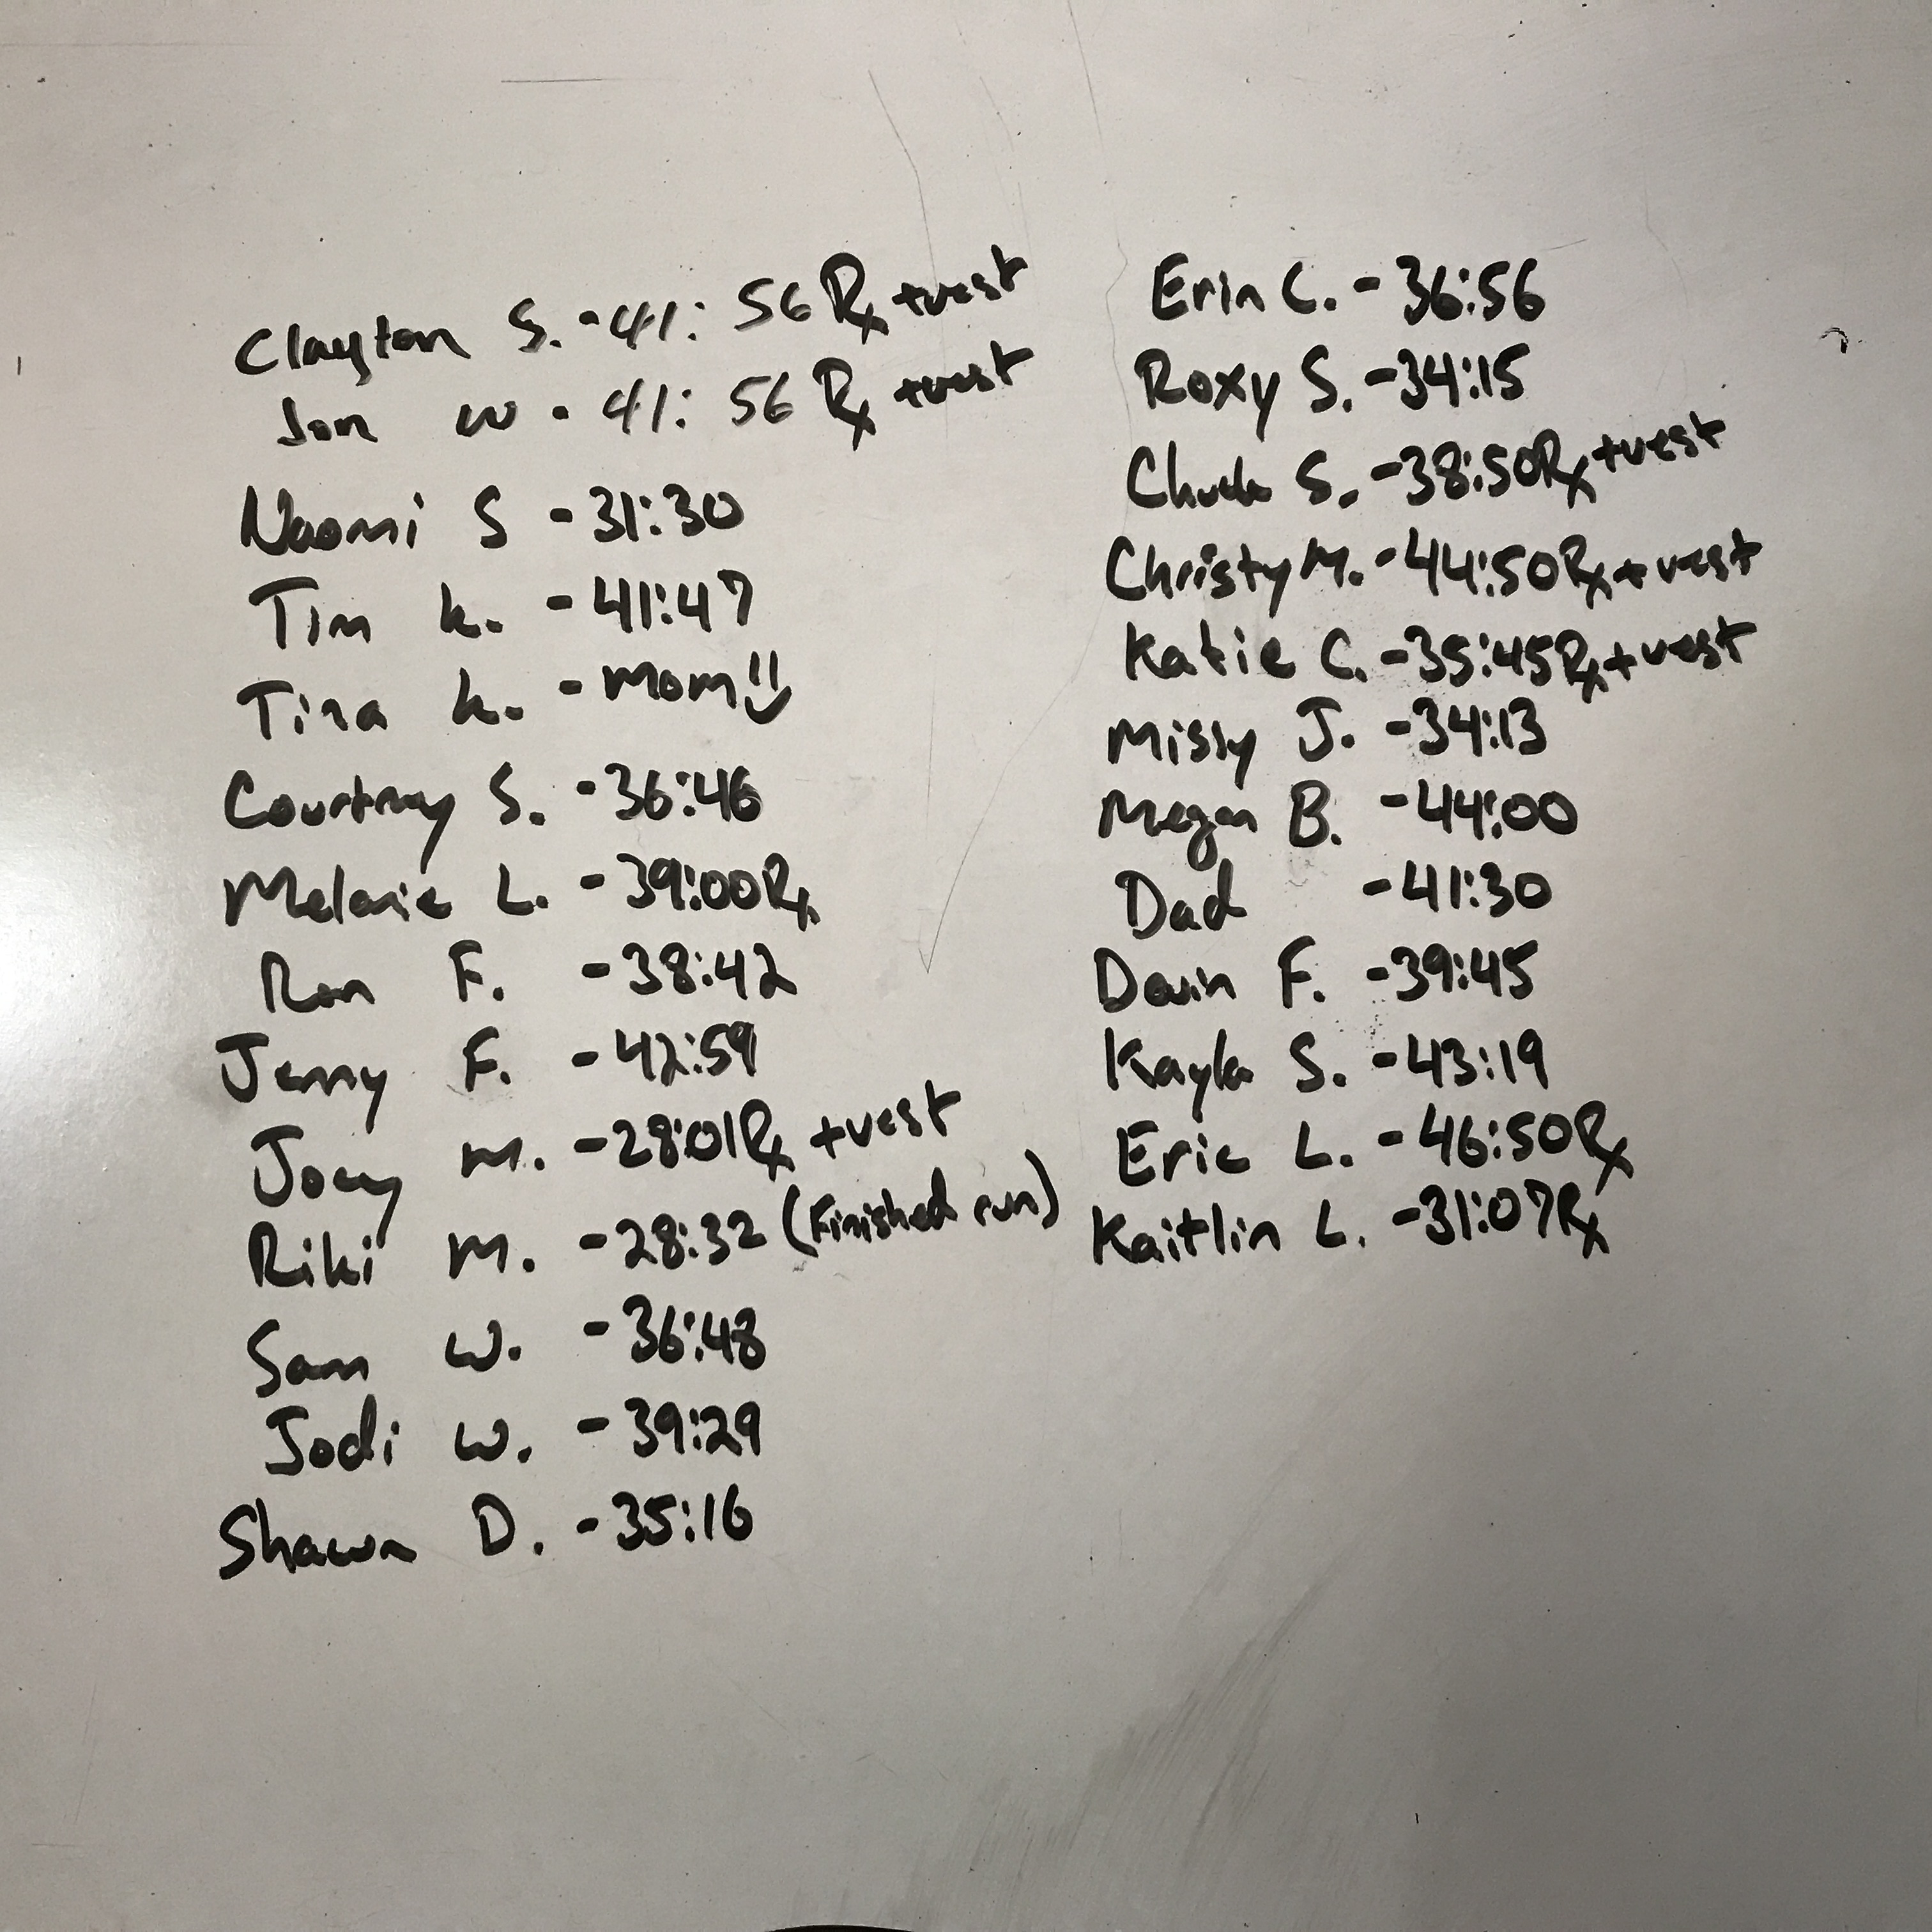 Clayton S. - 41:56 Rx +vest
Jon W - 41:56 Rx +vest
Naomi S - 31:30
Tim K. - 41:47
Tina K. - Mom!!
Courtney S. - 36:46
Melanie L. - 39:00 Rx
Ron F. - 38:42
Jenny F. - 42:59
Joey M. - 28:01 Rx +vest
Riki M. - 28:32 (Finished run)
Sam W. - 36:48
Jodi W. - 39:29
Shawn D. - 35:16
Erin C. - 36:56
Roxy S. - 34:15
Chuck S. - 38:50 Rx +vest
Christy M. - 44:50 Rx + vest
Katie C. - 35:45 Rx + vest
Missy J. - 34:13
Megan B. - 44:00
Dad - 41:30
Devin F. - 39:45
Kayla S. - 43:19
Eric L. - 46:50 Rx
Kaitlin L. - 31:07 Rx